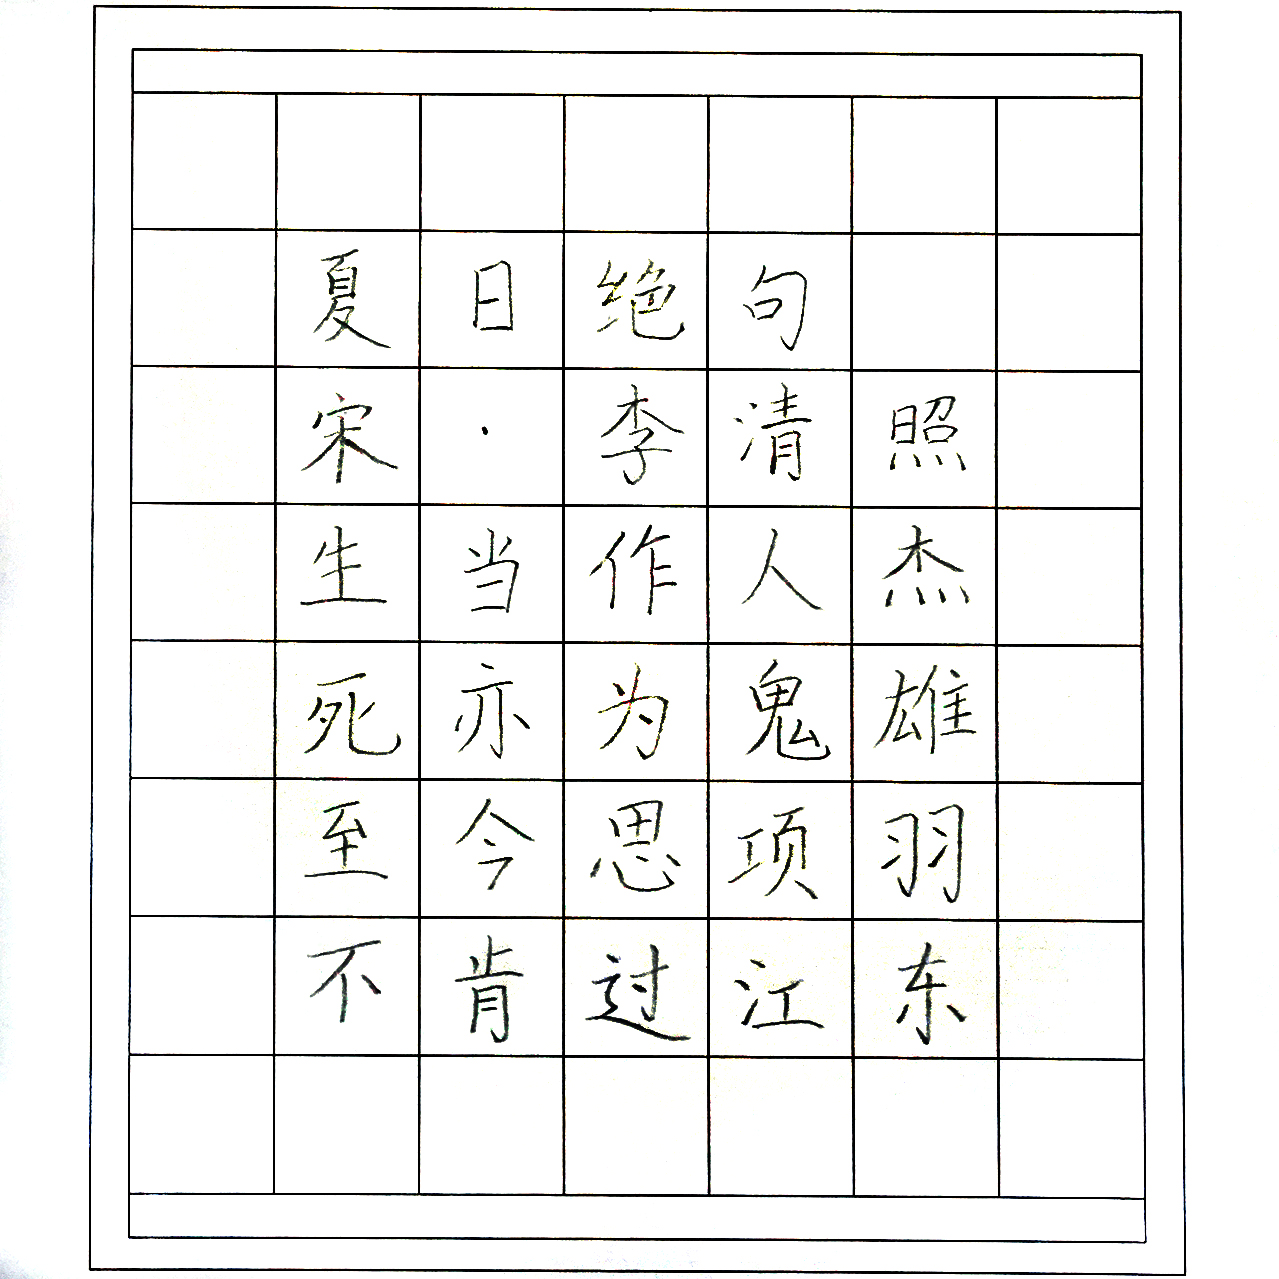 夏日绝句
宋·李清照
生当作人杰
死亦为鬼雄
至今思项羽
不肯过江东